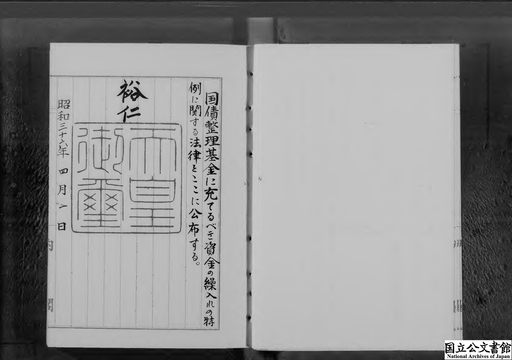 国債整理基金に充てるべき資金の繰入れの特
例に関する法律をここに公布する。
裕仁
天皇
御璽
昭和三十六年四月一日
内閣
国立公文書館
National Archives of Japan